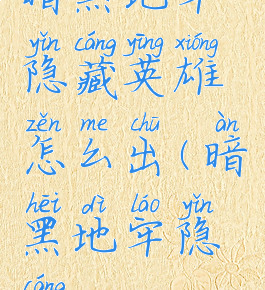 暗黑地牢
yǐn cáng yīng xióng
隐藏英雄
zěn me chū àn
怎么出(暗
hēi dì láo yǐn
黑地牢隐
cáng